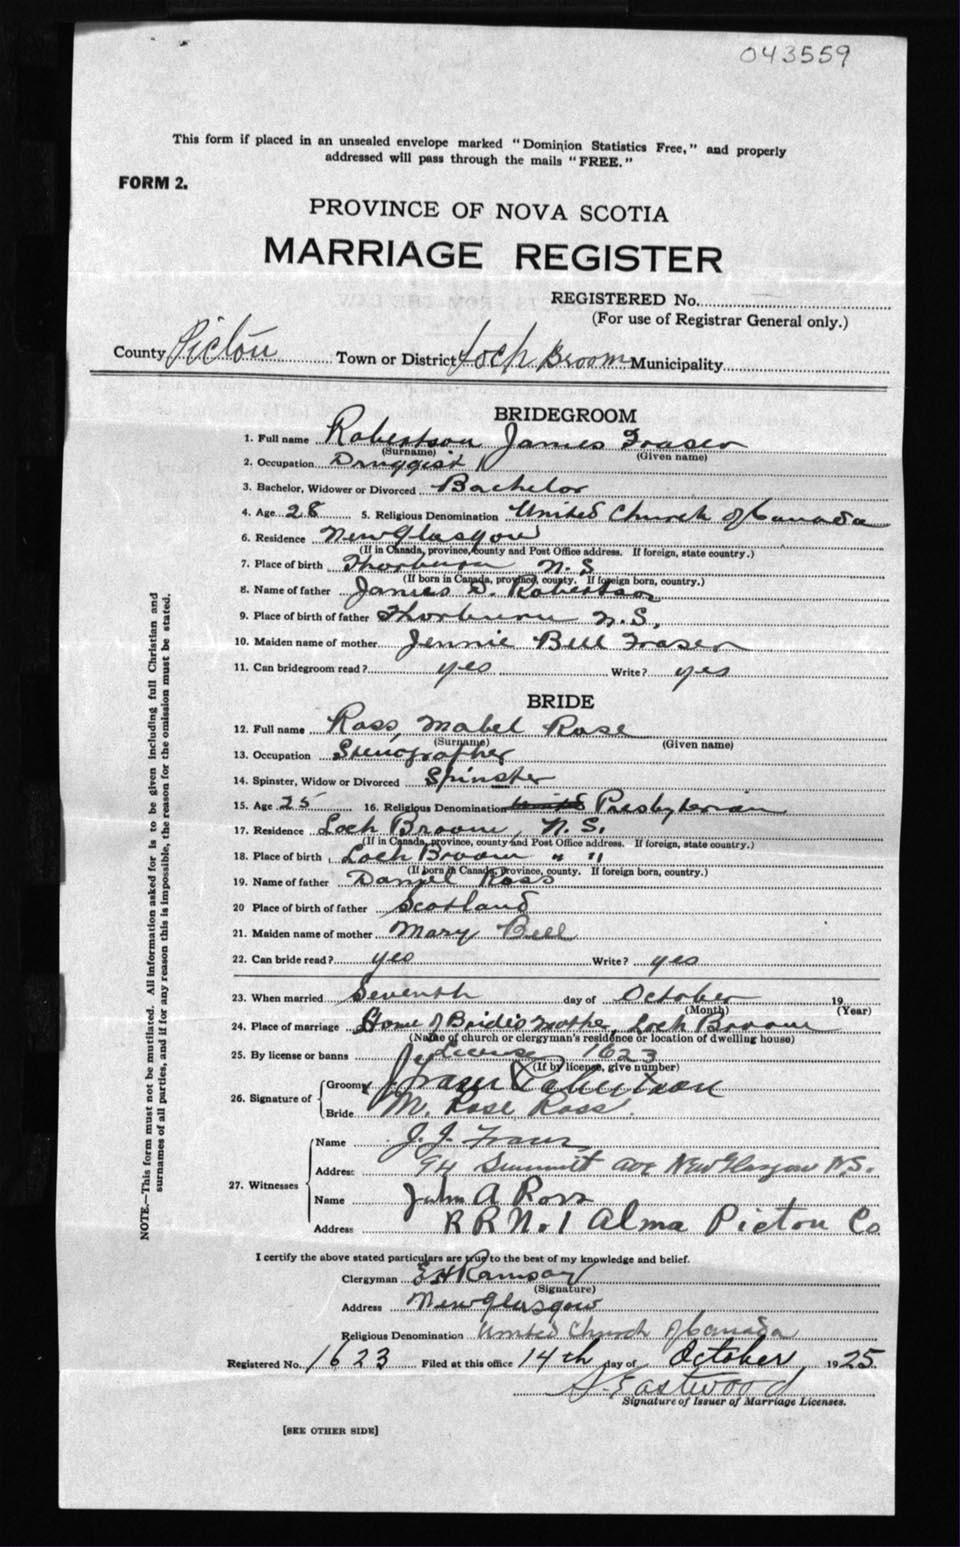 043559
This form if placed in an unsealed envelope marked "Dominion Statistics Free," and properly
addressed will pass through the mails "FREE."
FORM 2.
PROVINCE OF NOVA SCOTIA
MARRIAGE REGISTER
REGISTERED No.
(For use of Registrar General only.)
County Pictou Town or District Loch Broom Municipality
BRIDEGROOM
1. Full name Robertson James Fraser
(Surname) (Given name)
2. Occupation Druggist
3. Bachelor, Widower or Divorced Bachelor
4. Age 28 5. Religious Denomination United Church of Canada
6. Residence New Glasgow
(If in Canada, province, county and Post Office address. If foreign, state country.)
7. Place of birth Thorburn N.S
(If born in Canada, province, county. If foreign born, country.)
8. Name of father James D. Robertson
9. Place of birth of father Thorburn N.S.,
10. Maiden name of mother Jennie Bell Fraser
11. Can bridegroom read? yes Write? yes
BRIDE
12. Full name Ross, Mabel Rose
(Surname) (Given name)
13. Occupation Stenographer
14. Spinster, Widow or Divorced Spinster
15. Age 25 16. Religious Denomination United Presbyterian
17. Residence Loch Broom, N.S.
(If in Canada, province, county and Post Office address. If foreign, state country.)
18. Place of birth Loch Broom " "
(If born in Canada, province, county. If foreign born, country.)
19. Name of father Daniel Ross
20 Place of birth of father Scotland
21. Maiden name of mother Mary Bell
22. Can bride read? yes Write? yes
23. When married Seventh day of October 19
(Month) (Year)
24. Place of marriage Home of Bride's mother, Loch Broom
(Name of church or clergyman's residence or location of dwelling house)
25. By license or banns License 1623
(If by license, give number)
26. Signature of
Groom J Fraser Robertson
Bride M. Rose Ross.
27. Witnesses
Name J. J. Fraser
Address 94 Summit Ave New Glasgow N.S.
Name John A Ross
Address R R No. 1 Alma Pictou Co
I certify the above stated particulars are true to the best of my knowledge and belief.
Clergyman E H Ramsay
(Signature)
Address New Glasgow
Religious Denomination United Church of Canada
Registered No. 1623 Filed at this office 14th day of October 1925
Eastwood
Signature of Issuer of Marriage Licenses.
[SEE OTHER SIDE]
NOTE.—This form must not be mutilated. All information asked for is to be given including full Christian and
surnames of all parties, and if for any reason this is impossible, the reason for the omission must be stated.